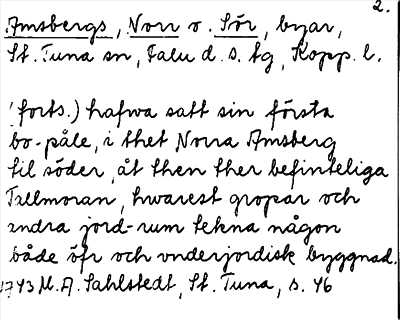 2.
Amsbergs, Norr o. Sör, byar,
St. Tuna sn, Falu d. s. tg, Kopp. l.
(forts.) hafwa satt sin första
bo-påle, i thet Norra Amsberg
til söder, åt then ther befinteliga
Tallmoran, hwarest gropar och
andra jord-rum tekna någon
både öfr och vnderjordisk byggnad.
1743 M. A. Sahlstedt, St. Tuna, s. 46